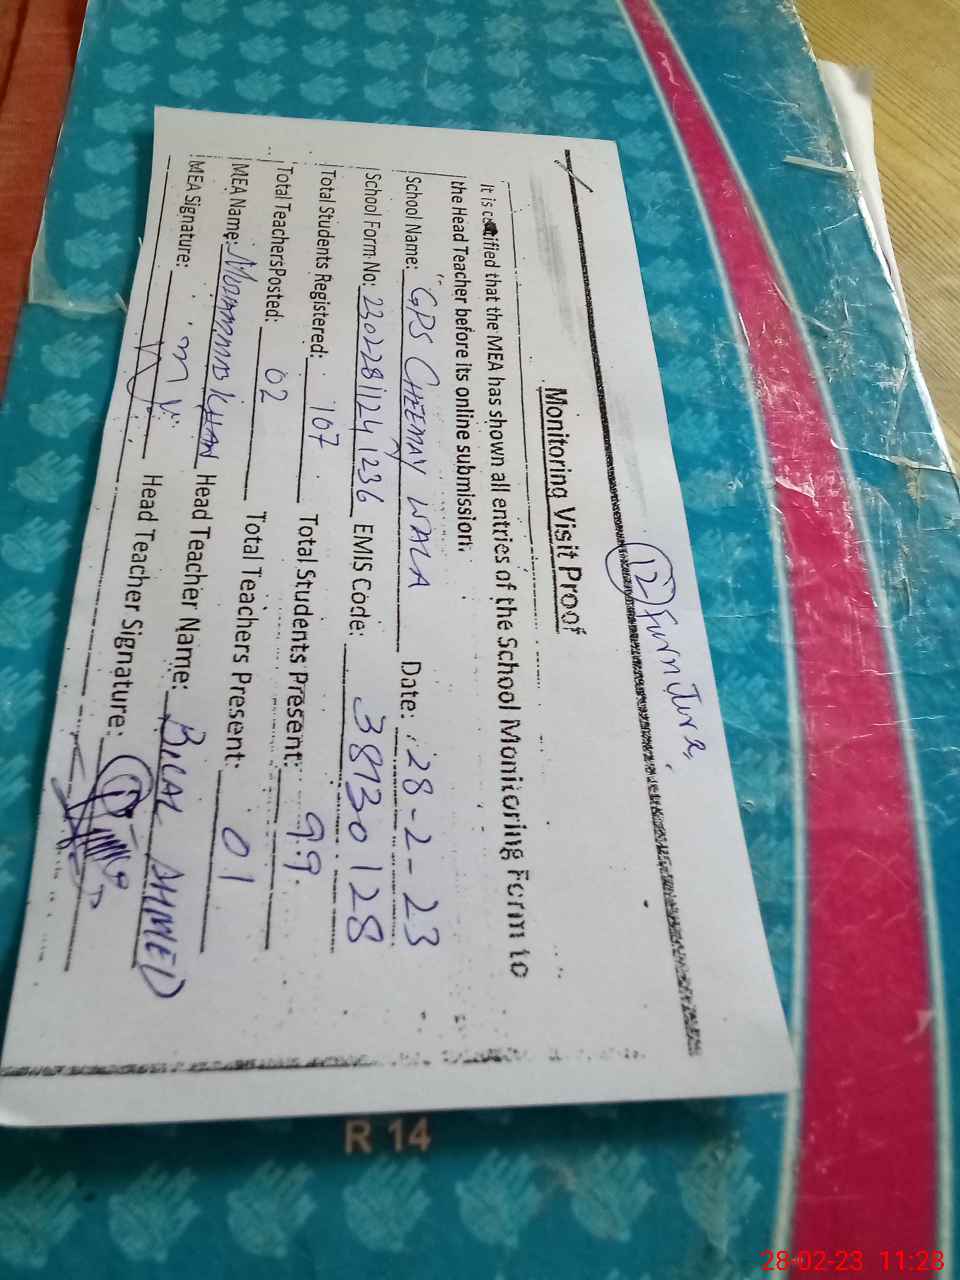 (12) Furniture,
Monitoring Visit Proof
It is certified that the MEA has shown all entries of the School Monitoring Form to
the Head Teacher before its online submission.
School Name: GPS CHEEMAY WALA Date: 28-2-23
School Form No: 23022811241236 EMIS Code: 38130128
Total Students Registered: 107 Total Students Present: 99
Total Teachers Posted: 02 Total Teachers Present: 01
MEA Name: MUHAMMAD KHAN Head Teacher Name: BILAL AHMED
MEA Signature: Head Teacher Signature:
R 14
28-02-23 11:28